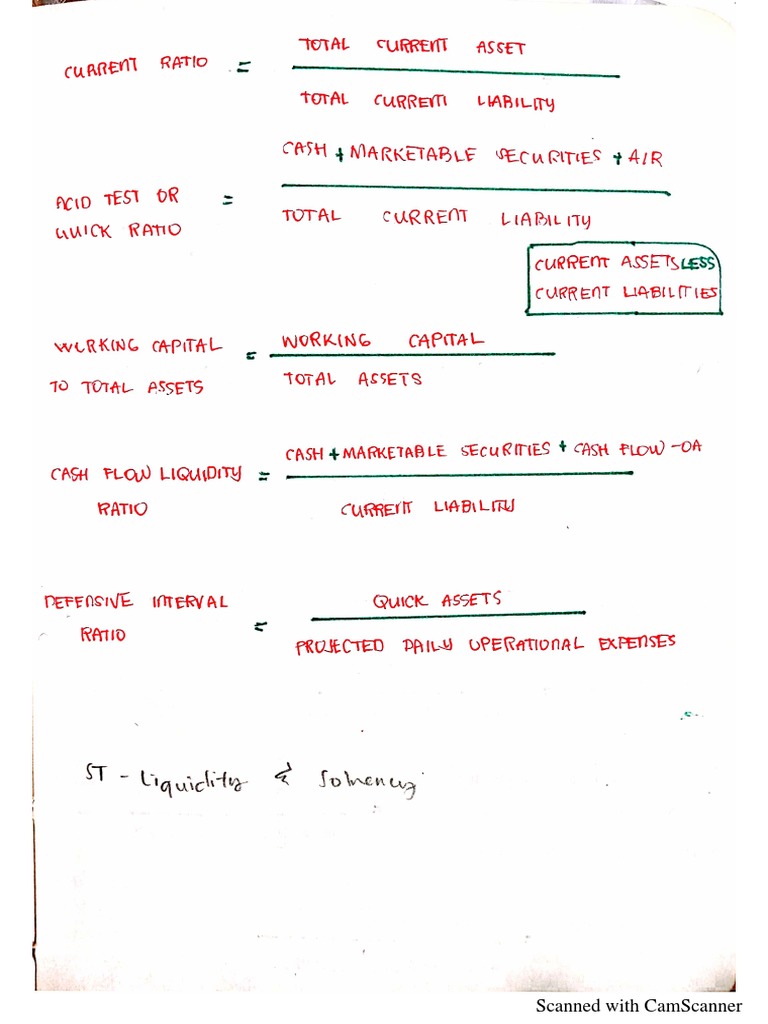 TOTAL CURRENT ASSET
CURRENT RATIO =
TOTAL CURRENT LIABILITY
CASH + MARKETABLE SECURITIES + A/R
ACID TEST OR =
QUICK RATIO
TOTAL CURRENT LIABILITY
CURRENT ASSETS LESS
CURRENT LIABILITIES
WORKING CAPITAL = WORKING CAPITAL
TO TOTAL ASSETS TOTAL ASSETS
CASH + MARKETABLE SECURITIES + CASH FLOW - OA
CASH FLOW LIQUIDITY =
RATIO CURRENT LIABILITY
DEFENSIVE INTERVAL QUICK ASSETS
RATIO =
PROJECTED DAILY OPERATIONAL EXPENSES
ST - Liquidity & Solvency
Scanned with CamScanner